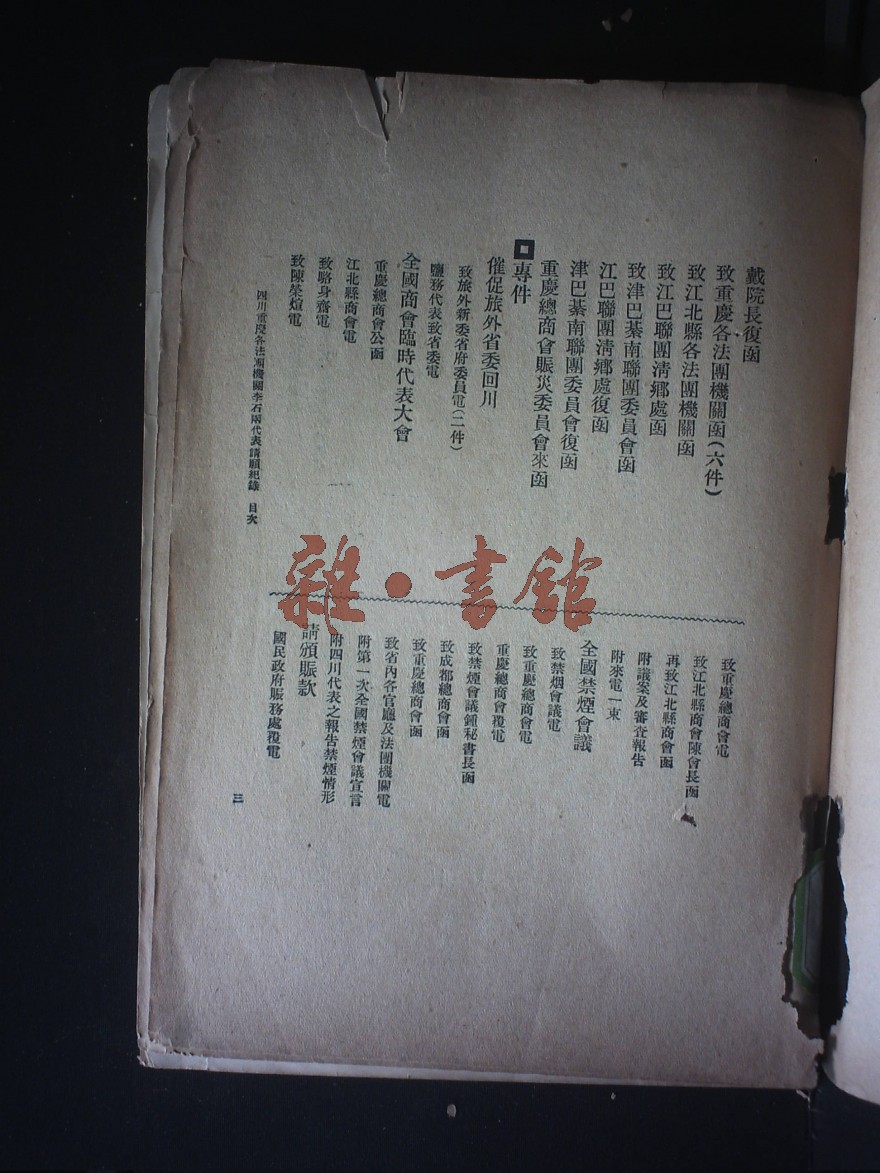 戴院長復函
致重慶各法團機關函(六件)
致江北縣各法團機關函
致江巴聯團淸鄉處函
致津巴綦南聯團委員會函
江巴聯團淸鄉處復函
津巴綦南聯團委員會復函
重慶總商會賑災委員會來函
專件
催促旅外省委回川
致旅外新委省府委員電(二件)
鹽務代表致省委電
全國商會臨時代表大會
重慶總商會公函
江北縣商會電
致駱身齋電
致陳榮煊電
致重慶總商會電
致江北縣商會陳會長函
再致江北縣商會函
附議案及審查報告
附來電一束
全國禁煙會議
致禁烟會議電
致重慶總商會電
重慶總商會復電
致禁煙會議鍾秘書長函
致成都總商會函
致重慶總商會函
致省內各官廳及法團機關電
附第一次全國禁煙會議宣言
附四川代表之報告禁煙情形
請頒賑款
國民政府賑務處復電
四川重慶各法團機關李石兩代表請願紀錄 目次
三
雜·書館